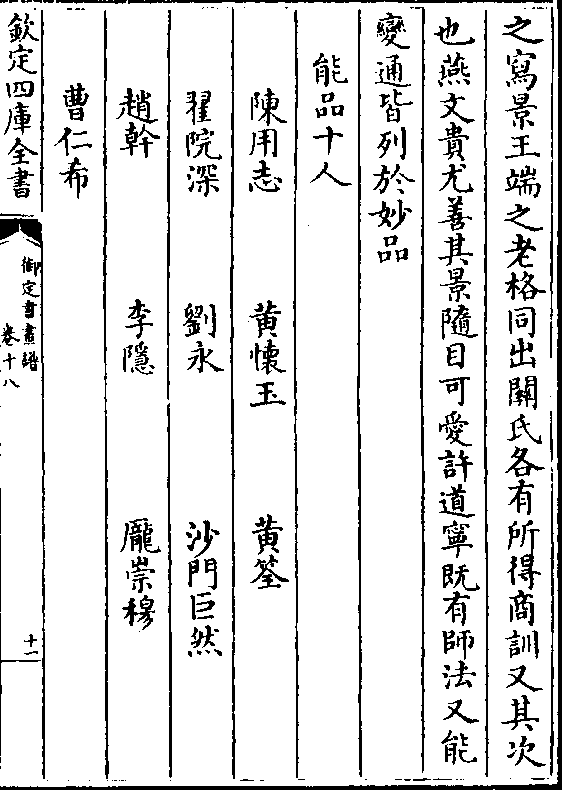 之寫景王端之老格同出關氏各有所得商訓又其次
也燕文貴尤善其景隨目可愛許道寧既有師法又能
變通皆列於妙品
能品十人
陳用志 黄懷玉 黄筌
翟院深 劉永 沙門巨然
趙幹 李隱 龎崇穆
曹仁布
欽定四庫全書
御定書畫譜
卷十八
十一